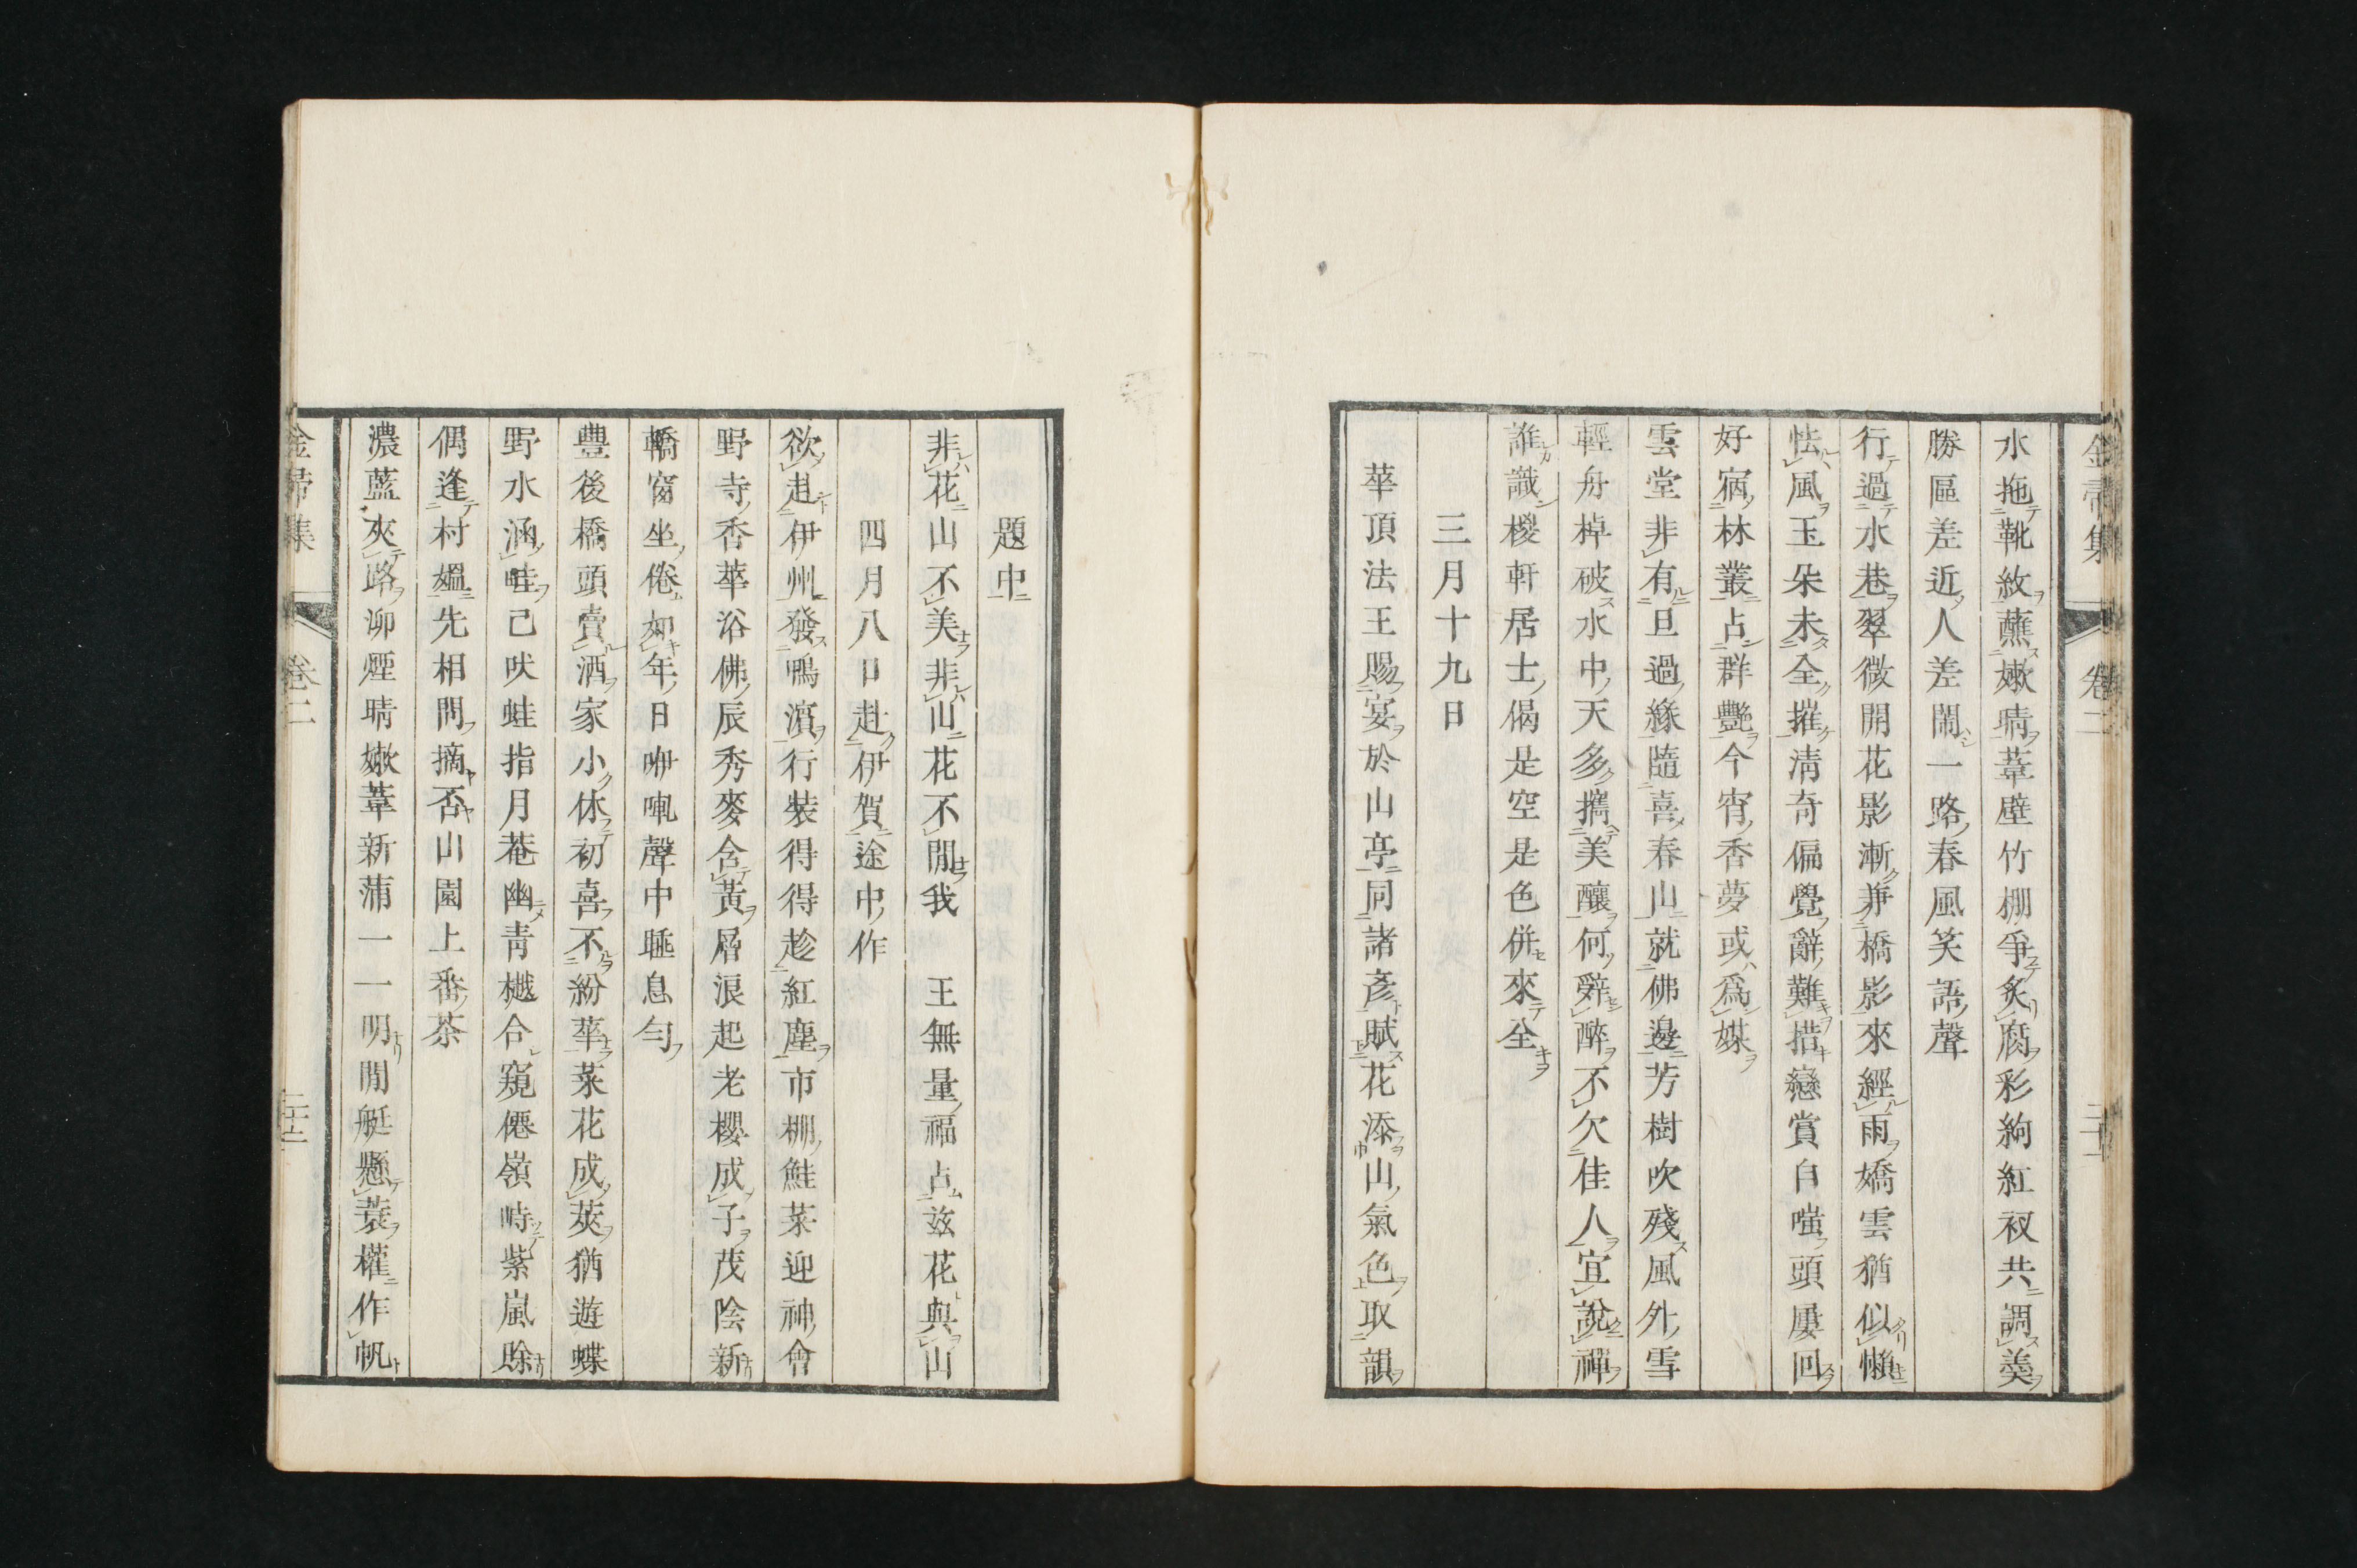 金帚集 卷二
水拖靴紋蘸嫩晴葦壁竹棚爭炙腐彩絢紅衩共調羮
勝區差近人差鬧一路春風笑語聲
行過水巷翠微開花影漸兼橋影來經雨嬌雲猶似懶
怯風玉朵未全摧淸奇偏覺辭難措戀賞自嗤頭屢回
好宿林叢占群艷今宵香夢或爲媒
雲堂非有旦過緣隨喜春山就佛邊芳樹吹殘風外雪
輕舟棹破水中天多攜美釀何辭醉不欠佳人宜說禪
誰識椶軒居士偈是空是色併來全
三月十九日
華頂法王賜宴於山亭同諸彥賦花添山氣色取韻
題中
非花山不美非山花不閒我 王無量福占茲花與山
四月八日赴伊賀途中作
欲赴伊州發鴨濱行裝得得趁紅塵市棚鮭菜迎神會
野寺香華浴佛辰秀麥含黃層浪起老櫻成子茂陰新
轎窗坐倦如年日咿啞聲中睡息勻
豊後橋頭賣酒家小休初喜不紛華菜花成莢猶遊蝶
野水涵畦已吠蛙指月菴幽靑樾合窺僊嶺峙紫嵐賖
偶逢村媼先相問摘否山園上番茶
濃藍夾路泖煙晴嫩葦新蒲一一明閒艇懸蓑權作帆
金帚集 卷二